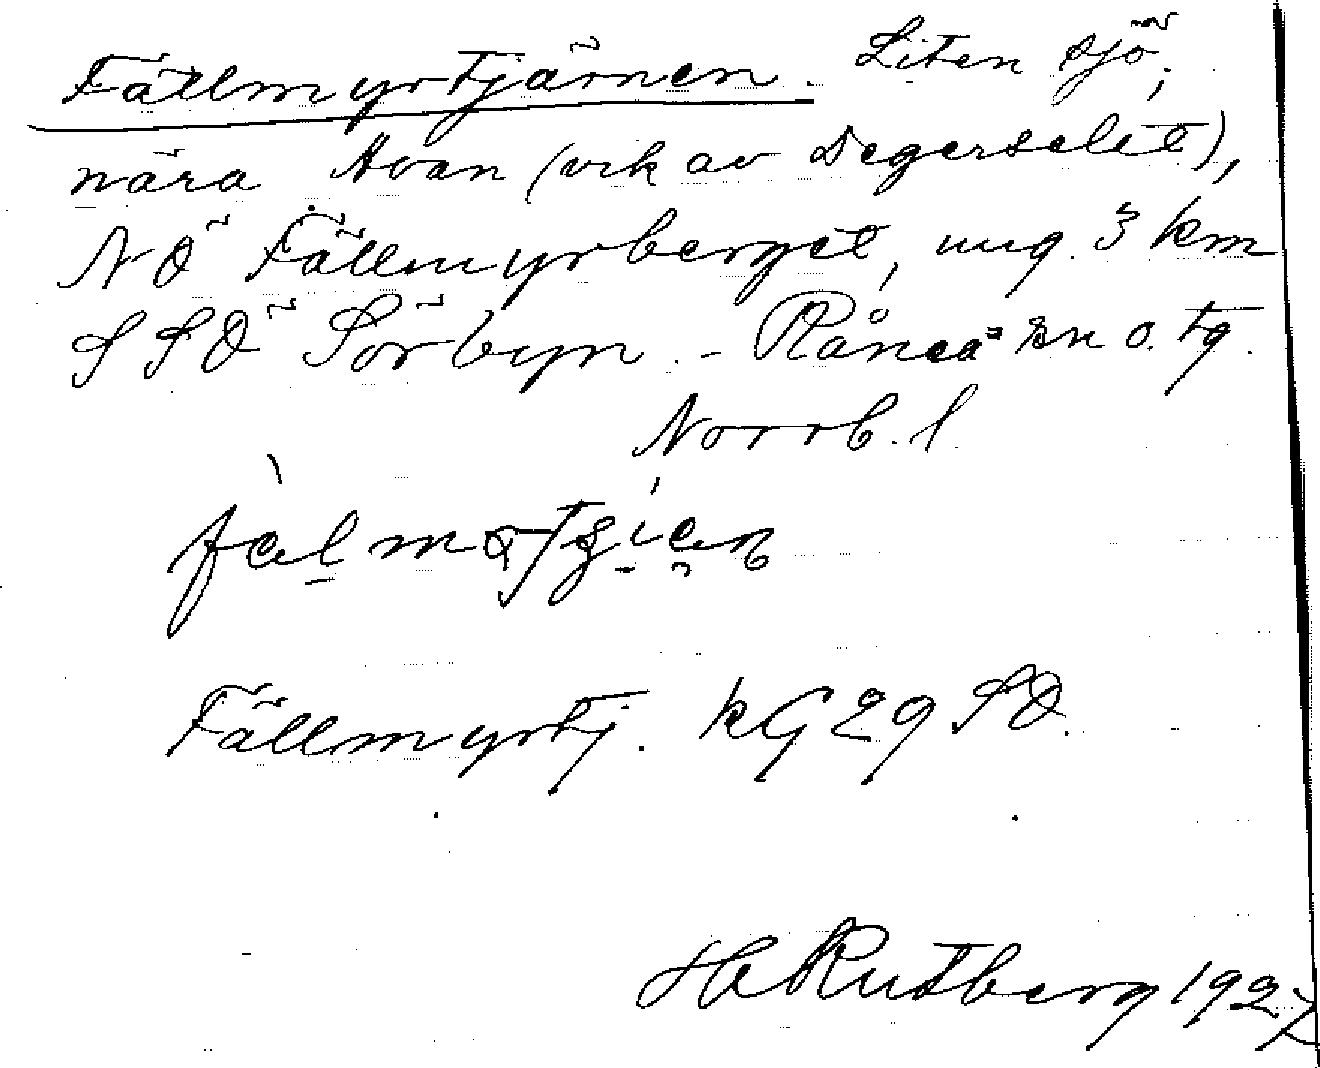 Fällmyrtjärnen. Liten sjö,
nära Avan (vik av Degerselet),
NÖ Fällmyrberget, ung. 3 km
SSÖ Sörbyn. - Råneå sn o. tg.
Norrb. l.
Fällmyrtj. kG 29 SÖ.
H Rutberg 1927